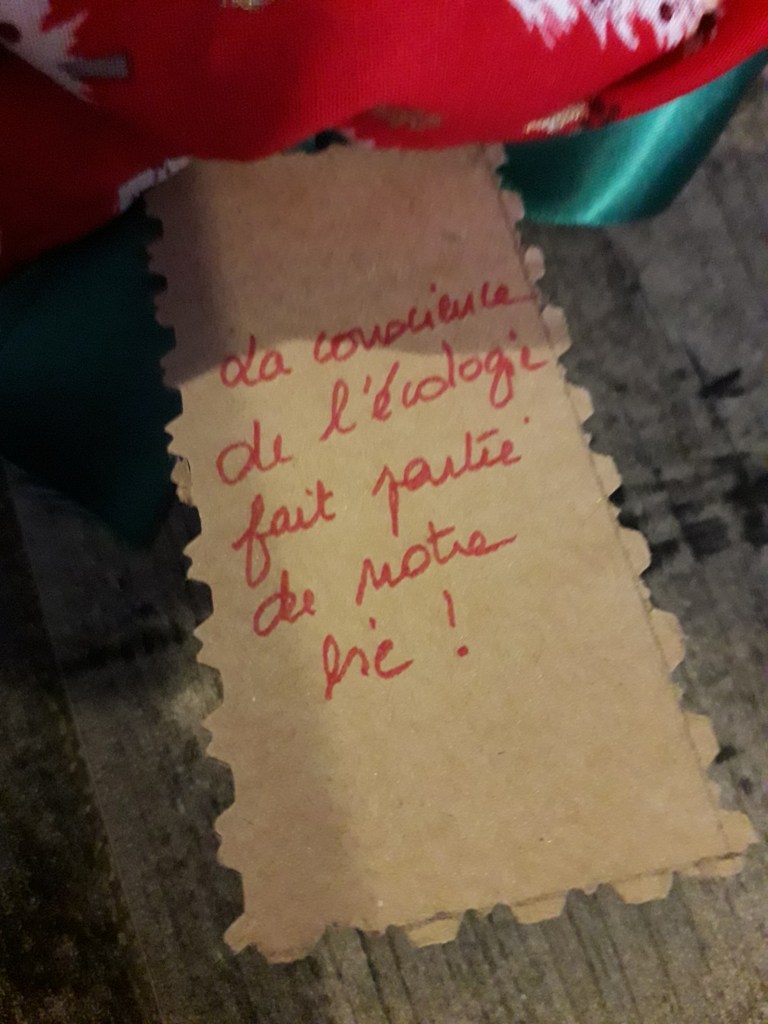 La conscience
de l'écologie
fait partie
de notre
vie !